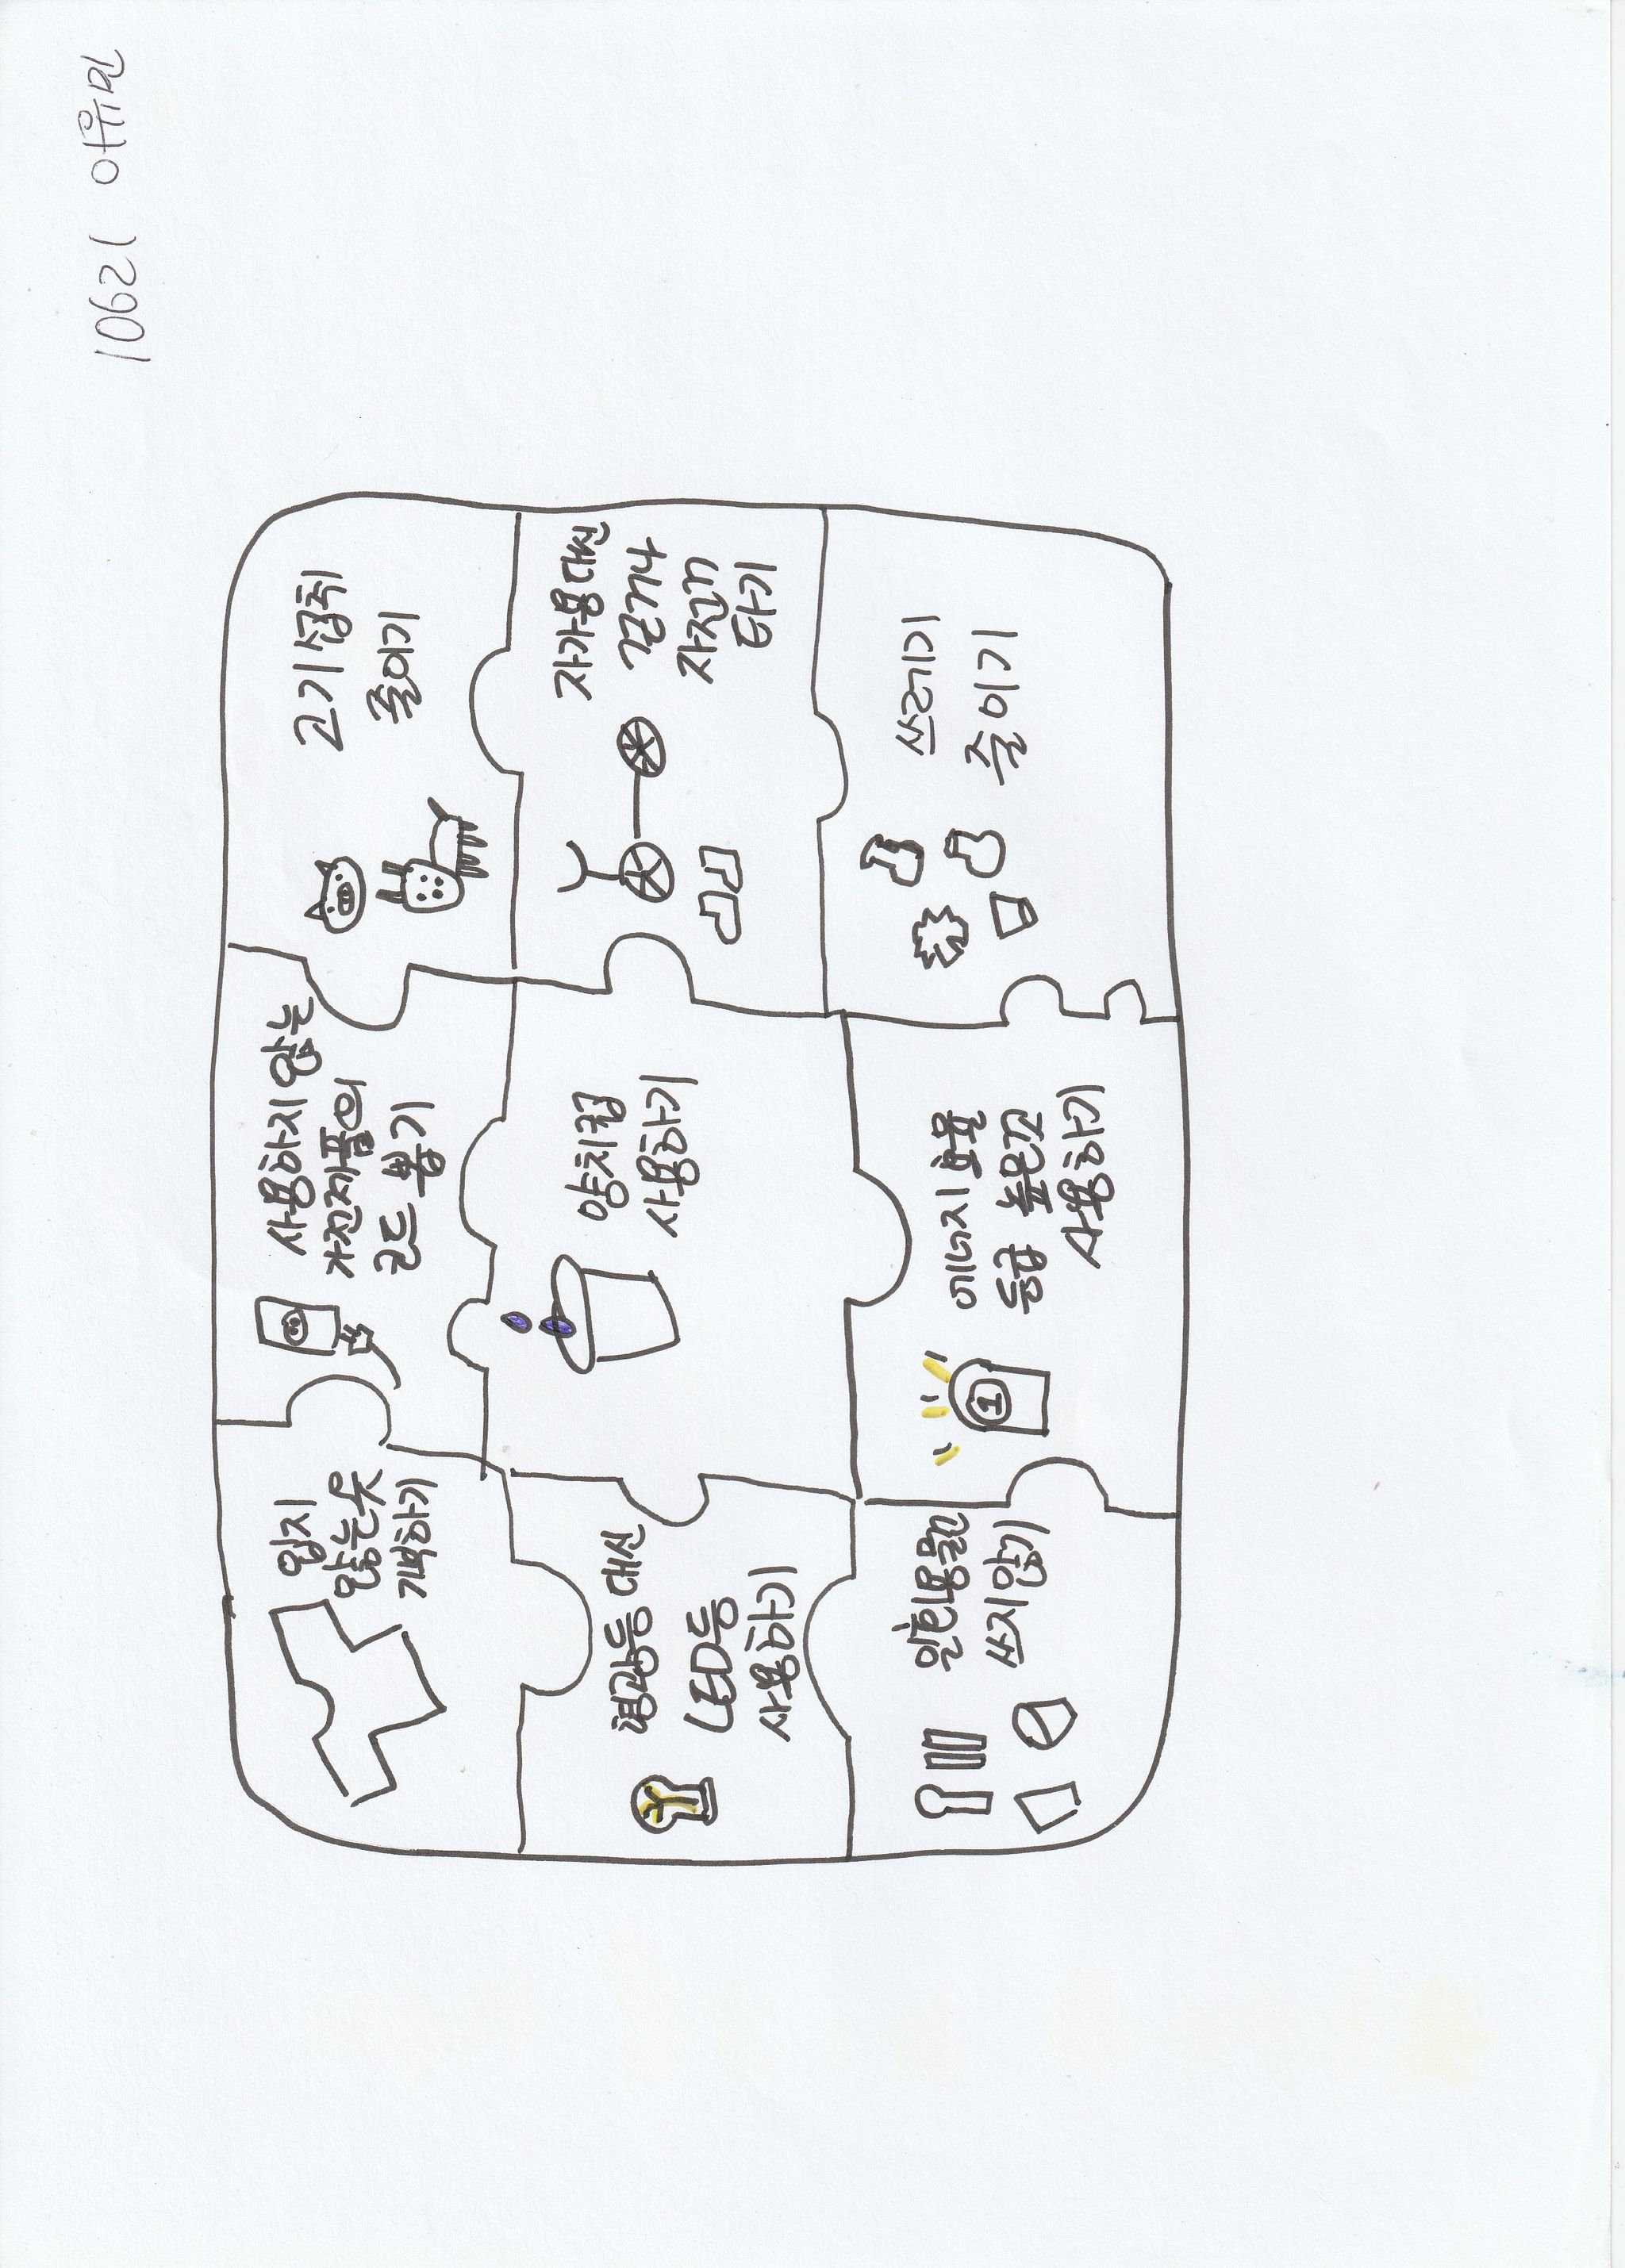 10621 이유민
입지
않는 옷
기부하기
사용하지 않는
가전제품의
코드 뽑기
고기 섭취
줄이기
형광등 대신
LED등
사용하기
양치컵
사용하기
자가용 대신
걷거나
자전거
타기
일회용품
쓰지 않기
에너지 효율
등급 높은것
사용하기
1
쓰레기
줄이기